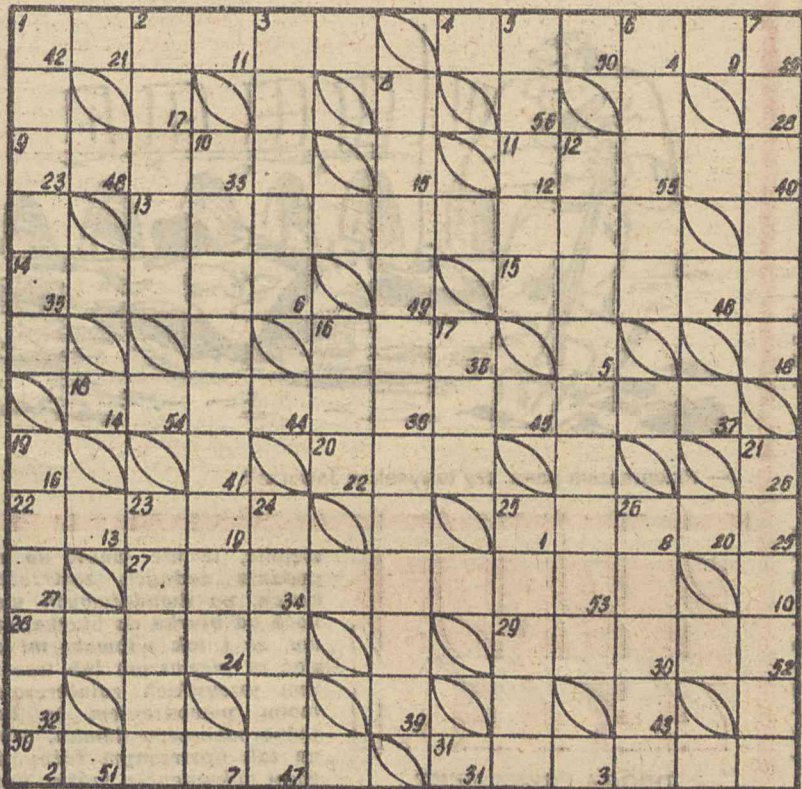 1 2 3 4 5 6 7
42 21 11 50 4 9 29
8
17 56 28
9 10 11 12
23 48 33 15 12 55 40
13
14 15
35 6 49 46
16 17
38 5 18
18
14 54 44 36 45 37
19 20 21
16 41 22 26
22 23 24 25 26
13 19 1 8 20 25
27
27 34 53 10
28 29
24 30 52
32 39 43
30 31
2 51 7 47 31 3